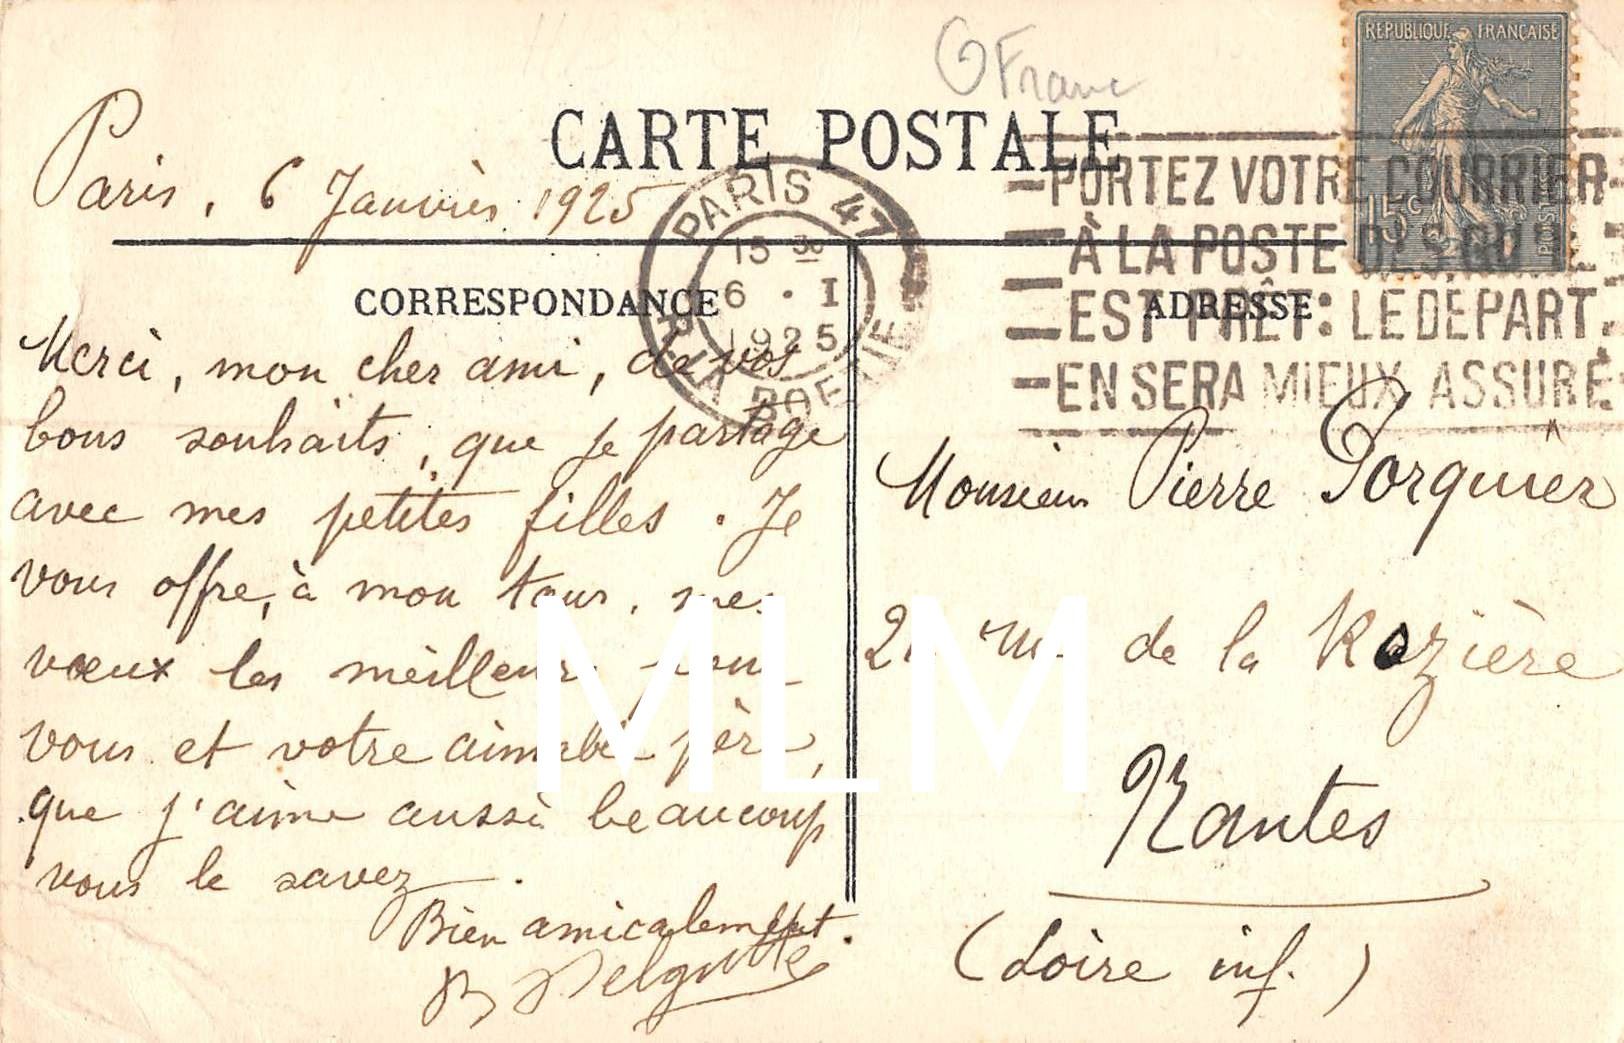 G Franc
REPUBLIQUE FRANÇAISE
15c
POSTES
CARTE POSTALE
Paris, 6 Janvier 1925
PARIS 47
15 30
6 . I
1925
R. LA BOETIE
PORTEZ VOTRE COURRIER
À LA POSTE DÈS QU'IL
EST PRÊT: LE DÉPART
EN SERA MIEUX ASSURÉ
CORRESPONDANCE
ADRESSE
Merci, mon cher ami, de vos
bons souhaits, que je partage
avec mes petites filles. Je
vous offre, à mon tour, mes
vœux les meilleurs pour
vous et votre aimable père,
que j'aime aussi beaucoup
vous le savez.
Bien amicalement.
Monsieur Pierre Porquier
rue de la Rozière
Nantes
(Loire inf.)
MLM